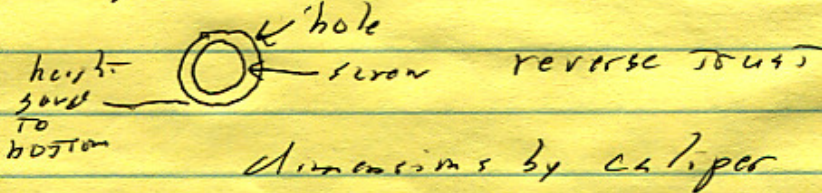 hole
screw
reverse
height
to
bottom
dimensions by caliper